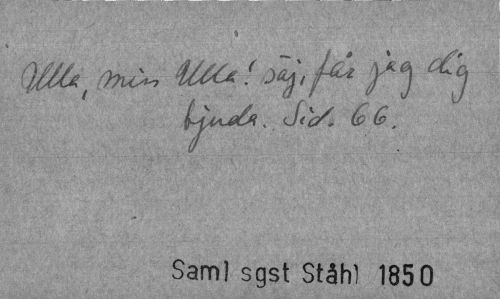 Ulla, min Ulla! säj, får jag dig
bjuda. Sid. 66.
Saml sgst Ståhl 1850